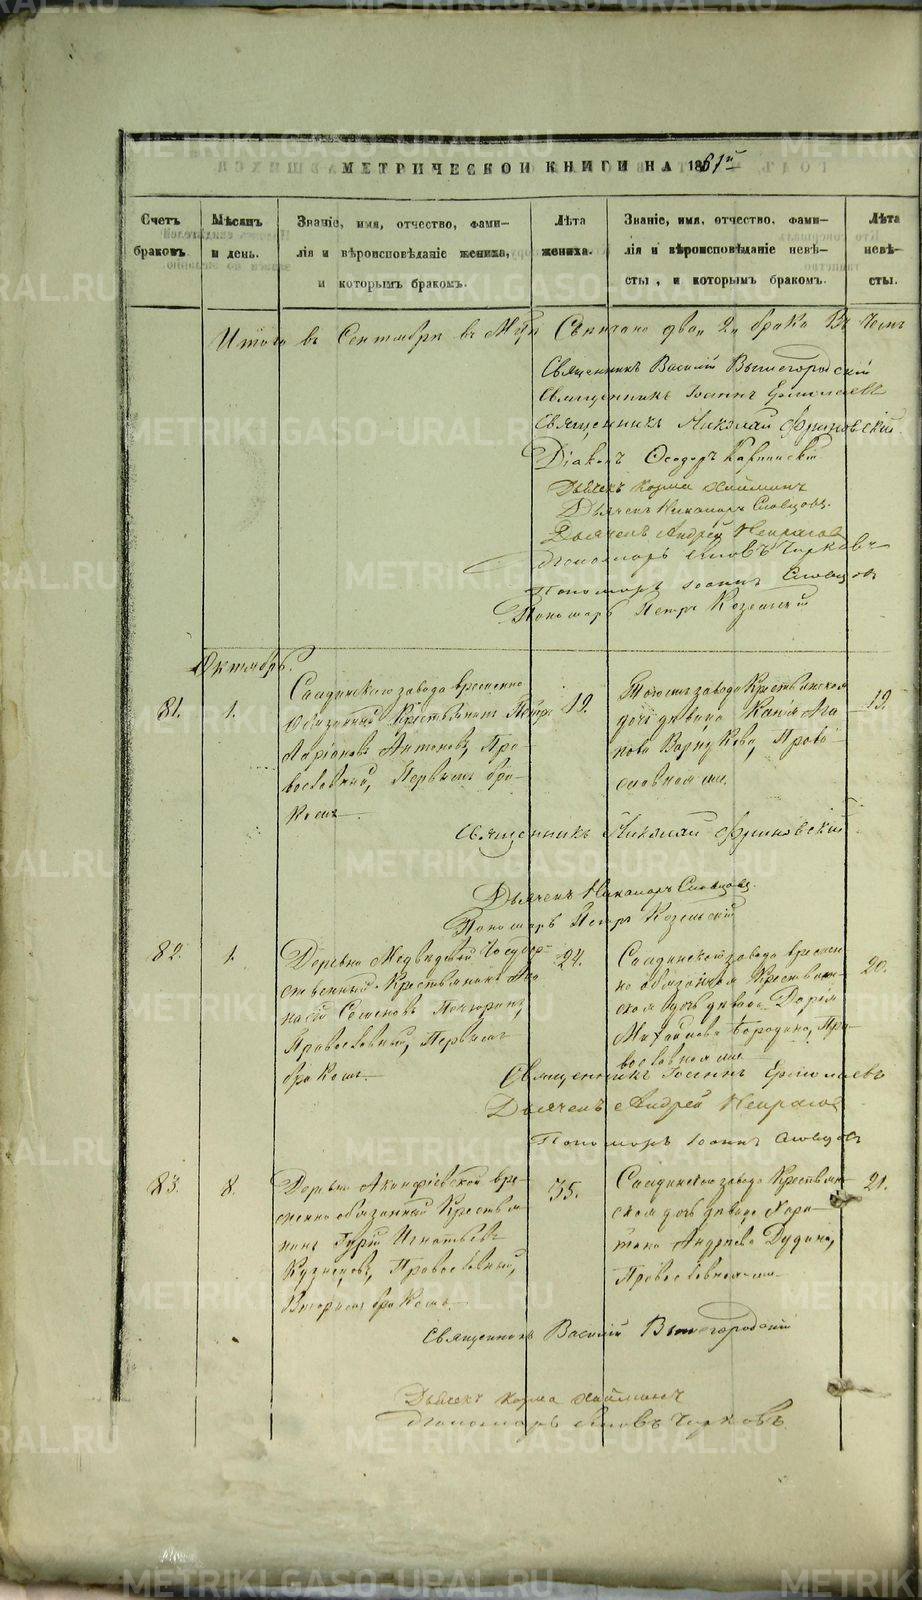 МЕТРИЧЕСКОЙ КНИГИ НА 1861й
Счетъ браковъ.
Мѣсяцъ и день.
Званіе, имя, отчество, фами-
лія и вѣроисповѣданіе жениха,
и которымъ бракомъ.
Лѣта жениха.
Званіе, имя, отчество, фами-
лія и вѣроисповѣданіе невѣ-
сты, и которымъ бракомъ.
Лѣта невѣ-
сты.
Итого въ Сентябрѣ в Мцѣ Свѣнчано два 2 брака Въ чемъ
Священникъ Василій Вышегородскій
Священникъ Іоаннъ Ермолаевъ
Священникъ Николай Флоровскій
Діаконъ Ѳеодоръ
Дьячекъ Козма
Дьячекъ Никаноръ Словцовъ.
Дьячекъ Андрей Некрасов
Пономарь Чирковъ
Пономарь Іоаннъ Словцовъ
Пономарь Петръ Козельскій
Октябрь.
81.
1.
Салдинскаго завода временно
Обязанный Крестьянинъ Петръ
Ларіоновъ Антоновъ, Пра-
вославный, Первымъ бра-
комъ.
19.
Тогожъ завода Крестьянская
дочь девица Ага-
пова Православная
19.
Священникъ Николай Флоровскій
Дьячекъ Никаноръ Словцовъ.
Пономарь Петръ Козельскій
82.
1.
Деревни Медведевой Государ-
ственный Крестьянинъ Афа-
насій Семеновъ
Православный, Первымъ
бракомъ.
24.
Салдинскаго завода времен-
но обязанная Крестьян-
ская дочь девица Дарія
Михайлова Бородина, Пра-
вославная
20.
Священникъ Іоаннъ Ермолаевъ
Дьячекъ Андрей Некрасов
Пономарь Іоаннъ Словцовъ
83.
8.
Деревни Акинфіевской вре-
менно обязанный Крестья-
нинъ Гурій Игнатьевъ
Кузнецовъ, Православный,
Вторымъ бракомъ.
35.
Салдинскаго завода Крестьян-
ская дочь девица Хари-
тина Андреева Дудина,
Православная
21.
Священникъ Василій Вышегородскій
Дьячекъ Козма
Пономарь Чирковъ
METRIKI.GASO-URAL.RU